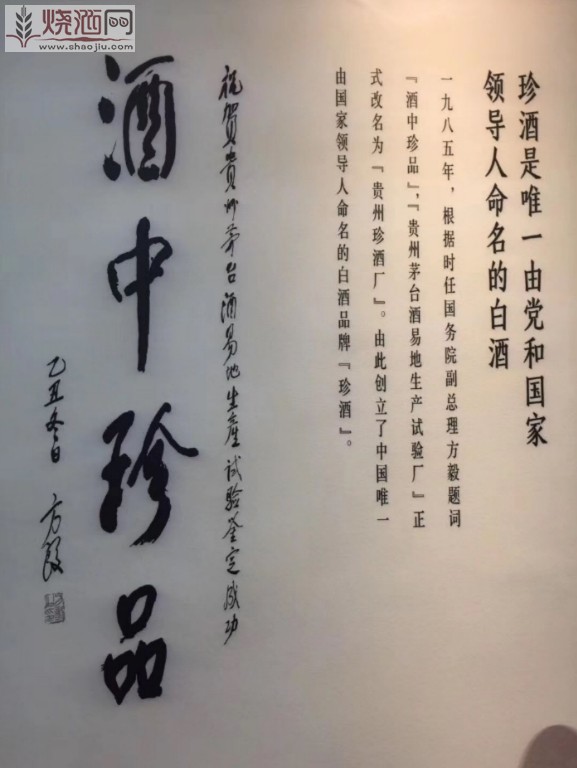 烧酒网
www.shaojiu.com
珍酒是唯一由党和国家
领导人命名的白酒
一九八五年，根据时任国务院副总理方毅题词
『酒中珍品』，『贵州茅台酒易地生产试验厂』正
式改名为『贵州珍酒厂』。由此创立了中国唯一
由国家领导人命名的白酒品牌『珍酒』。
祝贺贵州茅台酒易地生產试验鉴定成功
酒中珍品
乙丑冬日 方毅